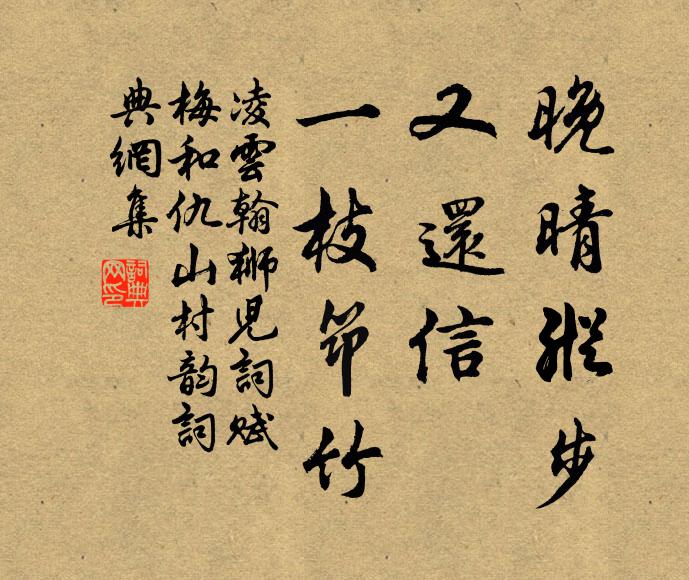 晚晴緃步
又還信
一枝筇竹
凌雲翰獅兒詞賦
梅和仇山村韵詞
典網集
詞典网印